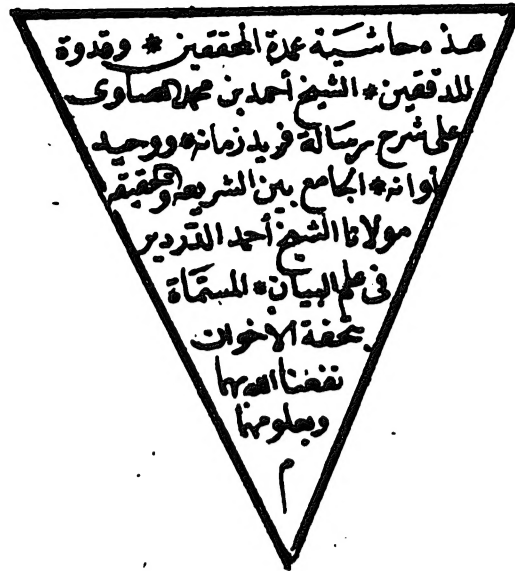 هذه حاشية عمدة المحققين * وقدوة
المدققين * الشيخ أحمد بن محمد الصاوى
على شرح رسالة فريد زمانه * ووحيد
أوانه * الجامع بين الشريعه والحقيقه
مولانا الشيخ أحمد الدردير
فى علم البيان * المسماة
بتحفة الاخوان
نفعنا الله بها
وبعلومهما
م